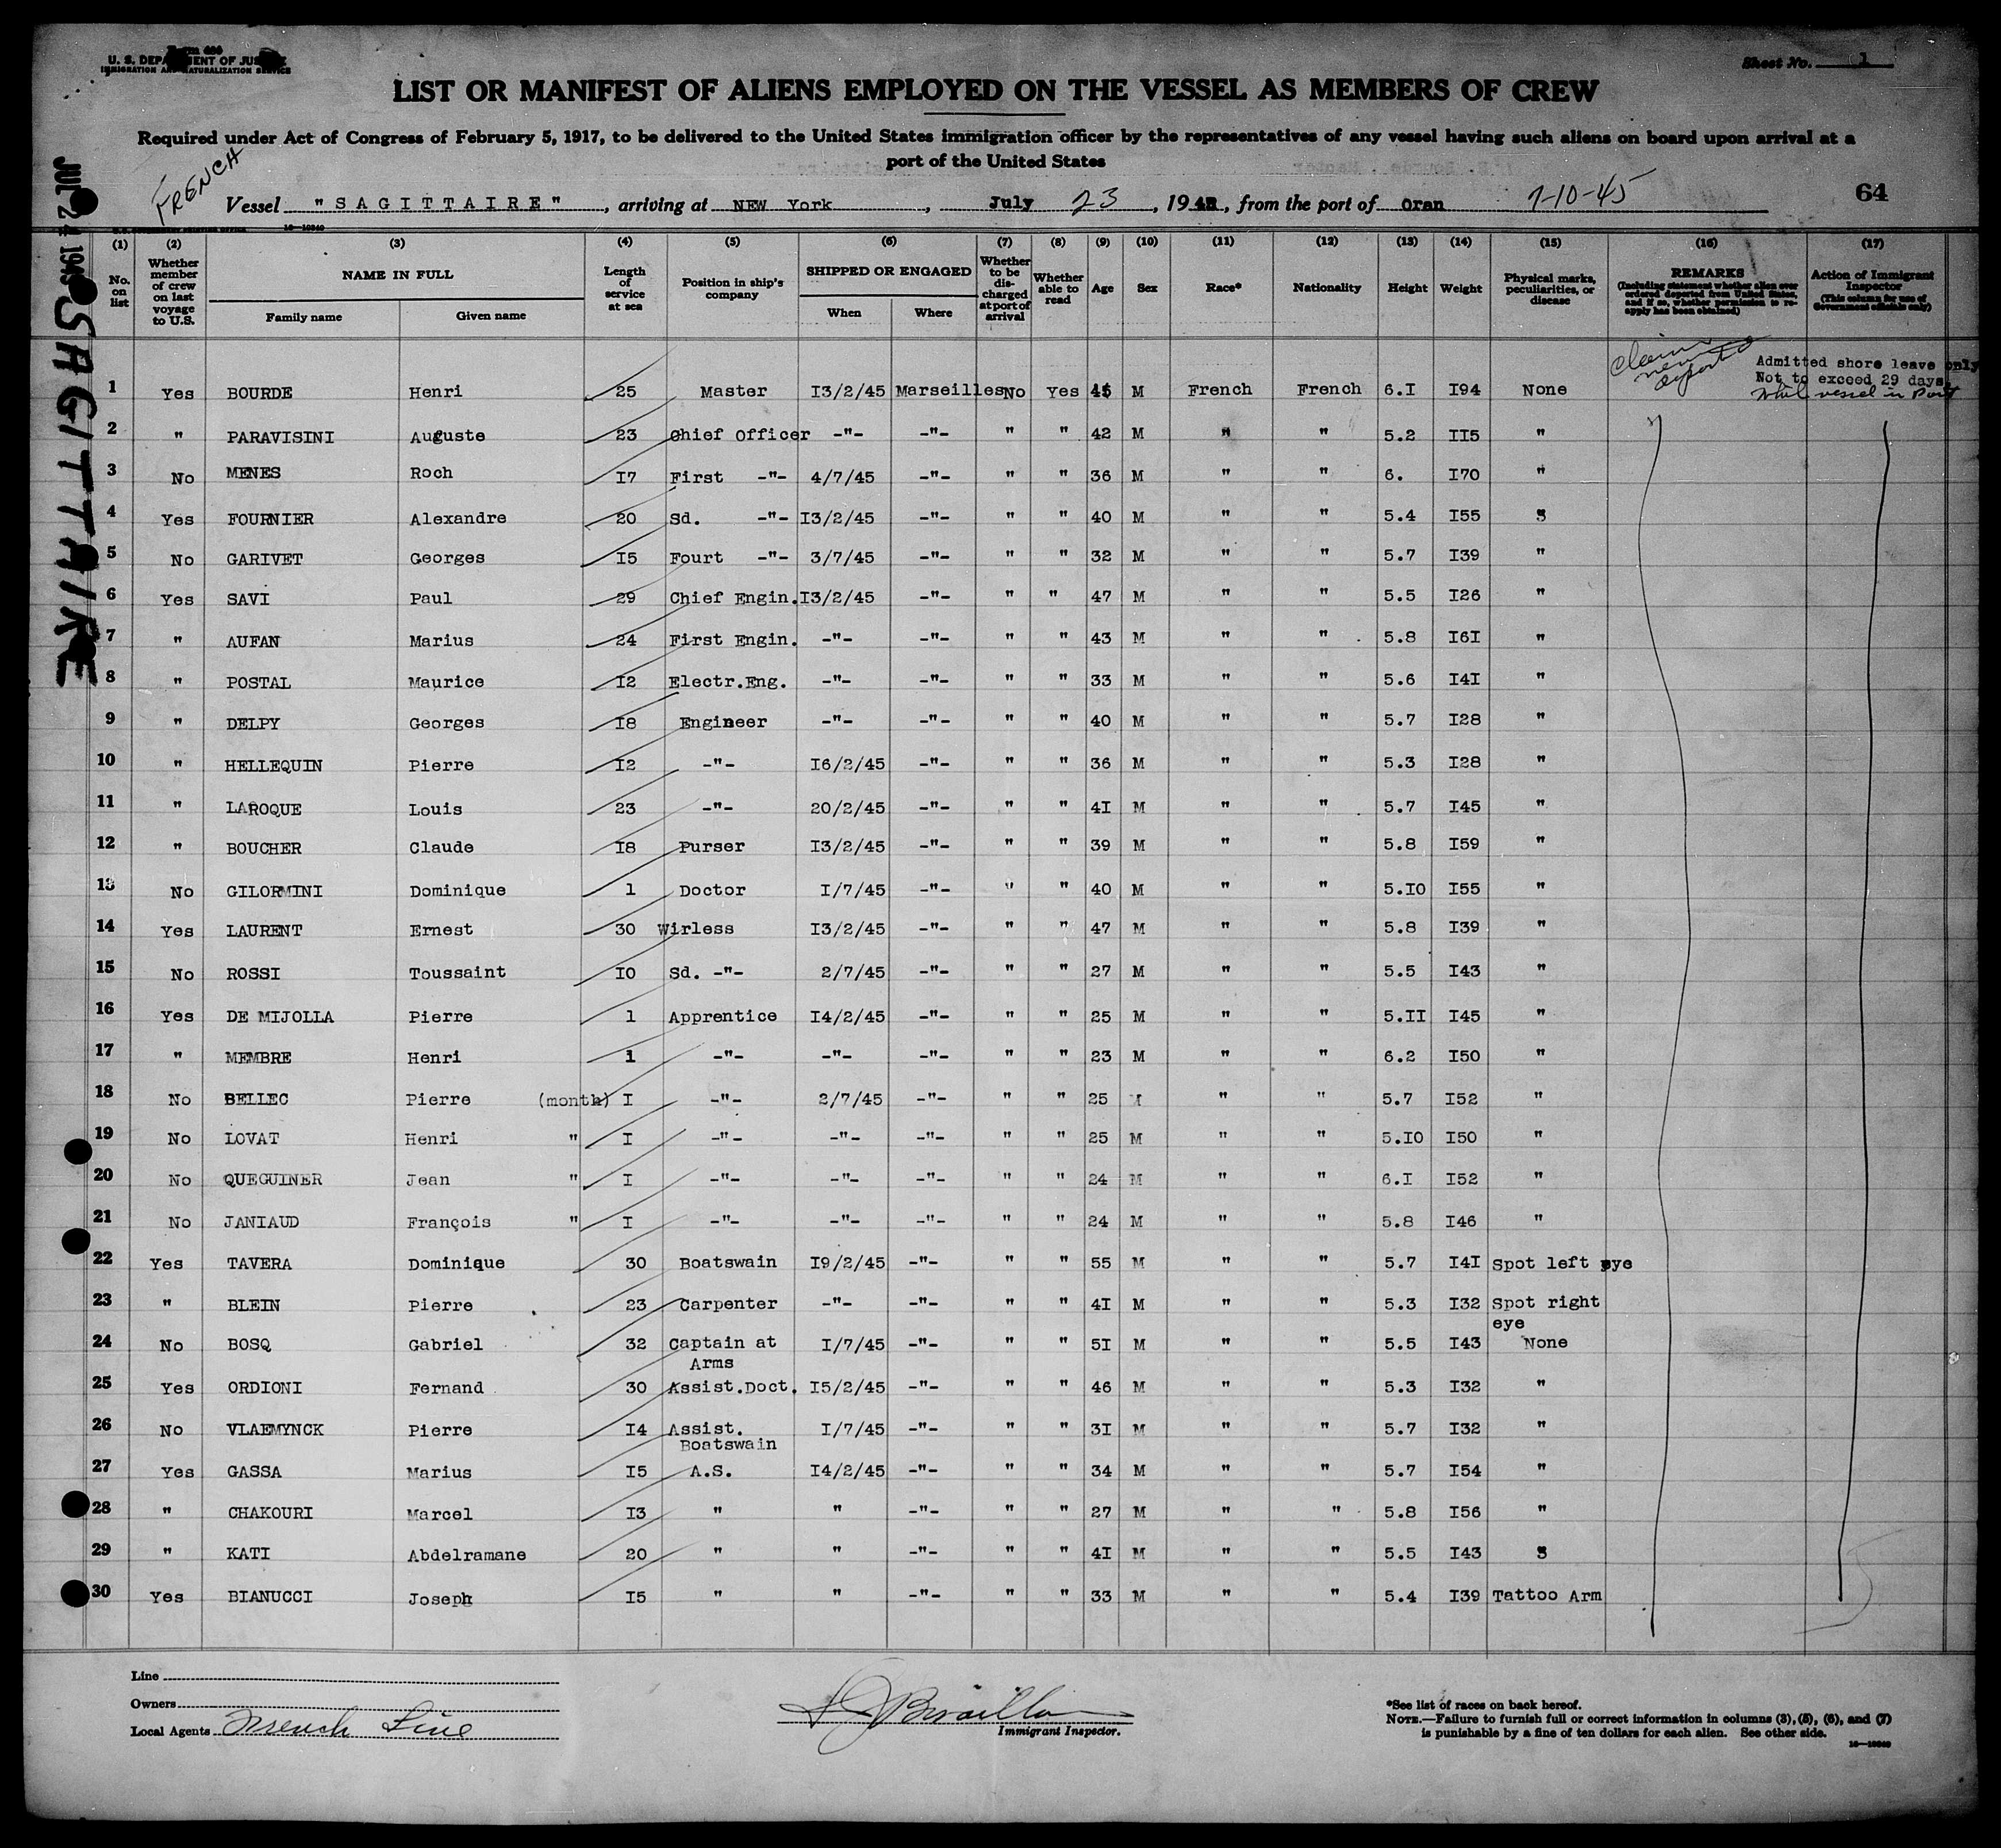 Form 689
U. S. DEPARTMENT OF JUSTICE
IMMIGRATION AND NATURALIZATION SERVICE
Sheet No. 1
LIST OR MANIFEST OF ALIENS EMPLOYED ON THE VESSEL AS MEMBERS OF CREW
Required under Act of Congress of February 5, 1917, to be delivered to the United States immigration officer by the representatives of any vessel having such aliens on board upon arrival at a
port of the United States
FRENCH
Vessel "SAGITTAIRE", arriving at NEW York, July 23, 194, from the port of Oran 7-10-45
64
JUL 24 1945
SAGITTAIRE
(1) (2) (3) (4) (5) (6) (7) (8) (9) (10) (11) (12) (13) (14) (15) (16) (17)
No. on list
Whether member of crew on last voyage to U.S.
NAME IN FULL
Family name Given name
Length of service at sea
Position in ship's company
SHIPPED OR ENGAGED
When Where
Whether to be discharged at port of arrival
Whether able to read
Age
Sex
Race*
Nationality
Height
Weight
Physical marks, peculiarities, or disease
REMARKS
(Including statement whether alien ever ordered deported from United States, and if so, whether permission to reapply has been obtained)
Action of Immigrant Inspector
(This column for use of Government officials only)
Admitted shore leave only
Not to exceed 29 days
While vessel in Port
Claims never deported
1 Yes BOURDE Henri 25 Master I3/2/45 Marseilles No Yes 45 M French French 6.I I94 None
2 " PARAVISINI Auguste 23 Chief Officer -"- -"- " " 42 M " " 5.2 II5 "
3 No MENES Roch I7 First -"- 4/7/45 -"- " " 36 M " " 6. I70 "
4 Yes FOURNIER Alexandre 20 Sd. -"- I3/2/45 -"- " " 40 M " " 5.4 I55 "
5 No GARIVET Georges I5 Fourt -"- 3/7/45 -"- " " 32 M " " 5.7 I39 "
6 Yes SAVI Paul 29 Chief Engin. I3/2/45 -"- " " 47 M " " 5.5 I26 "
7 " AUFAN Marius 24 First Engin. -"- -"- " " 43 M " " 5.8 I6I "
8 " POSTAL Maurice I2 Electr.Eng. -"- -"- " " 33 M " " 5.6 I4I "
9 " DELPY Georges I8 Engineer -"- -"- " " 40 M " " 5.7 I28 "
10 " HELLEQUIN Pierre I2 -"- I6/2/45 -"- " " 36 M " " 5.3 I28 "
11 " LAROQUE Louis 23 -"- 20/2/45 -"- " " 4I M " " 5.7 I45 "
12 " BOUCHER Claude I8 Purser I3/2/45 -"- " " 39 M " " 5.8 I59 "
13 No GILORMINI Dominique 1 Doctor I/7/45 -"- " " 40 M " " 5.I0 I55 "
14 Yes LAURENT Ernest 30 Wirless I3/2/45 -"- " " 47 M " " 5.8 I39 "
15 No ROSSI Toussaint I0 Sd. -"- 2/7/45 -"- " " 27 M " " 5.5 I43 "
16 Yes DE MIJOLLA Pierre 1 Apprentice I4/2/45 -"- " " 25 M " " 5.II I45 "
17 " MEMBRE Henri 1 -"- -"- -"- " " 23 M " " 6.2 I50 "
18 No BELLEC Pierre (month) I -"- 2/7/45 -"- " " 25 M " " 5.7 I52 "
19 No LOVAT Henri " I -"- -"- -"- " " 25 M " " 5.I0 I50 "
20 No QUEGUINER Jean " I -"- -"- -"- " " 24 M " " 6.I I52 "
21 No JANIAUD François " I -"- -"- -"- " " 24 M " " 5.8 I46 "
22 Yes TAVERA Dominique 30 Boatswain I9/2/45 -"- " " 55 M " " 5.7 I4I Spot left eye
23 " BLEIN Pierre 23 Carpenter -"- -"- " " 4I M " " 5.3 I32 Spot right eye
24 No BOSQ Gabriel 32 Captain at Arms I/7/45 -"- " " 5I M " " 5.5 I43 None
25 Yes ORDIONI Fernand 30 Assist.Doct. I5/2/45 -"- " " 46 M " " 5.3 I32 "
26 No VLAEMYNCK Pierre I4 Assist. Boatswain I/7/45 -"- " " 3I M " " 5.7 I32 "
27 Yes GASSA Marius I5 A.S. I4/2/45 -"- " " 34 M " " 5.7 I54 "
28 " CHAKOURI Marcel I3 " " -"- " " 27 M " " 5.8 I56 "
29 " KATI Abdelramane 20 " " -"- " " 4I M " " 5.5 I43 "
30 Yes BIANUCCI Joseph I5 " " -"- " " 33 M " " 5.4 I39 Tattoo Arm
Line
Owners
Local Agents French Line
Immigrant Inspector.
*See list of races on back hereof.
NOTE.—Failure to furnish full or correct information in columns (3), (5), (6), and (7)
is punishable by a fine of ten dollars for each alien. See other side.